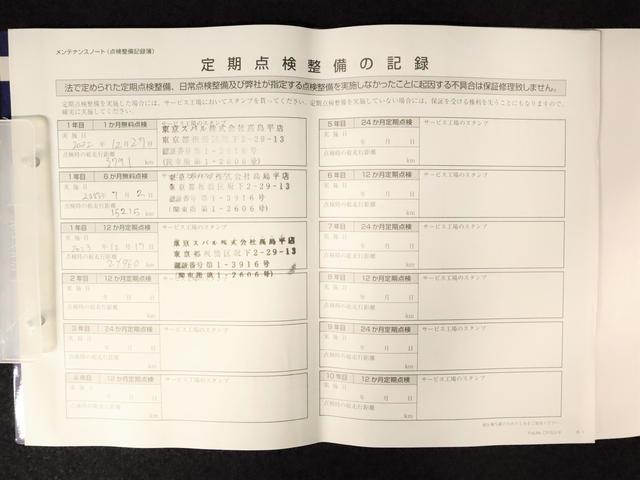 メンテナンスノート(点検整備記録簿)
定期点検整備の記録
法で定められた定期点検整備、日常点検整備及び弊社が指定する点検整備を実施しなかったことに起因する不具合は保証修理致しません。
定期点検整備を実施した場合には、サービス工場においてスタンプを貰ってください。定期点検整備を実施していない場合には、保証を受ける権利を失うこともになりますので、
確実に実施してください。
1年目 1か月無料点検 サービス工場のスタンプ
実施日
2022年12月27日
点検時の総走行距離
km
東京スバル株式会社高島平店
東京都板橋区坂下2-29-13
認証番号第1-3916号
1年目 6か月無料点検 サービス工場のスタンプ
実施日
2023年7月2日
点検時の総走行距離
15215 km
東京スバル株式会社高島平店
東京都板橋区坂下2-29-13
認証番号第1-3916号
1年目 12か月定期点検 サービス工場のスタンプ
実施日
2023年12月17日
点検時の総走行距離
km
東京スバル株式会社高島平店
東京都板橋区坂下2-29-13
認証番号第1-3916号
2年目 12か月定期点検 サービス工場のスタンプ
実施日
年 月 日
点検時の総走行距離
km
3年目 12か月定期点検 サービス工場のスタンプ
実施日
年 月 日
点検時の総走行距離
km
4年目 12か月定期点検 サービス工場のスタンプ
実施日
年 月 日
点検時の総走行距離
km
5年目 24か月定期点検 サービス工場のスタンプ
実施日
年 月 日
点検時の総走行距離
km
6年目 12か月定期点検 サービス工場のスタンプ
実施日
年 月 日
点検時の総走行距離
km
7年目 24か月定期点検 サービス工場のスタンプ
実施日
年 月 日
点検時の総走行距離
km
8年目 12か月定期点検 サービス工場のスタンプ
実施日
年 月 日
点検時の総走行距離
km
9年目 24か月定期点検 サービス工場のスタンプ
実施日
年 月 日
点検時の総走行距離
km
10年目 12か月定期点検 サービス工場のスタンプ
実施日
年 月 日
点検時の総走行距離
km